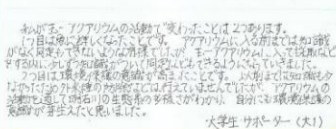 私が生き アクアリウムの活動で変わったことは2つあります。
1つ目は魚に詳しくなったことです。アクアリウムに入る前までは知識
がなく同定もできないような有様でしたが、生き アクアリウムに入って活動など
をする内に少しずつ知識がついて同定などもできるようになっていきました。
2つ目は環境保護の意識が高まったことです。以前までは知識も
なかったため外来種の防除などは行えていませんでしたが、アクアリウム
の活動を通して明石川の生態系の多様さがわかり、自分にも環境保護の
意識が芽生えたと思いました。
大学生 サポーター(大1)